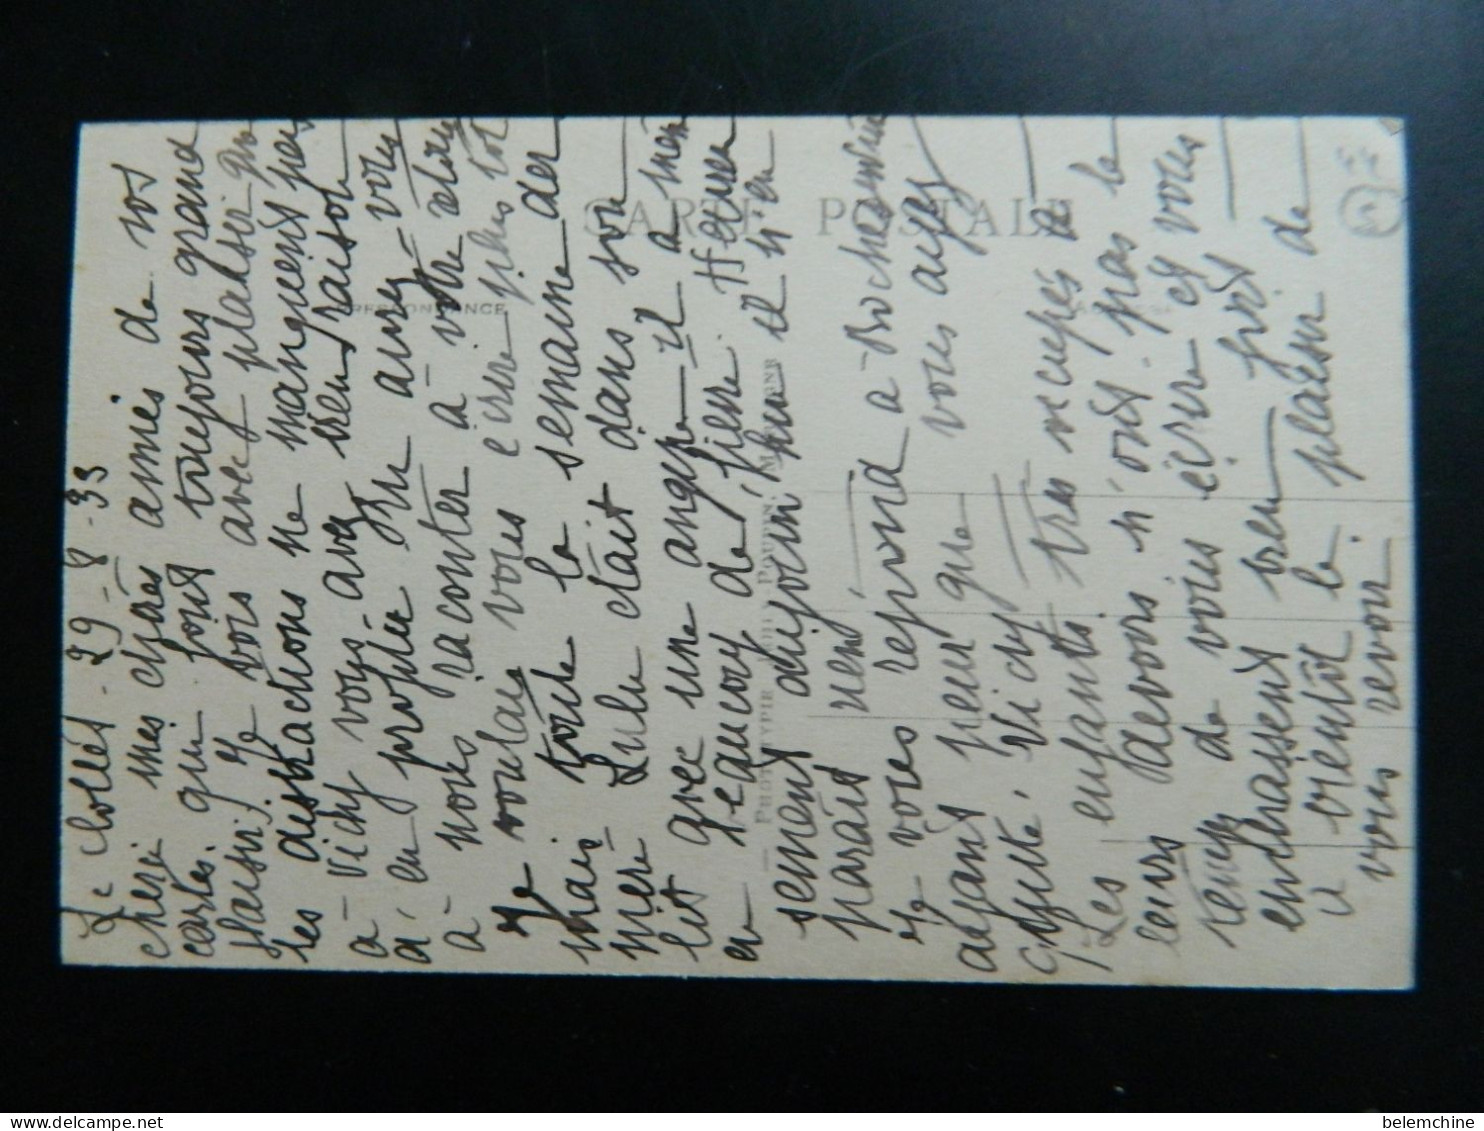 Le Collet. 29-8-33
merci mes chers amis de vos
cartes. qui font toujours grand
plaisir; Je vois avec plaisir que
les distractions ne manquent pas
a-Vichy vous avez bien raison
d'en profiter Vous aurez vous
a-nous raconter à-votre retour
Je voulais vous écrire plus tôt
mais toute la semaine der
nière Lulu était dans son
lit avec une angine-il a même
eu beaucoup de fièvre. Heureu
sement aujourd'hui il n'en
parait rien
Je vous répond a-Rochessauve
ayant peur que vous ayez
quitté. Vichy
Les enfants très occupés a
leurs devoirs n'ont pas le
temps de vous écrire et vous
embrassent bien fort
a bientôt le plaisir de
vous revoir.
CARTE POSTALE
CORRESPONDANCE
ADRESSE
PHOTOTYPIE